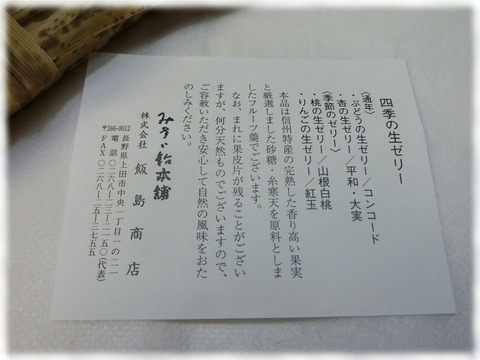 四季の生ゼリー
〈通年〉
・ぶどうの生ゼリー／コンコード
・杏の生ゼリー／平和・大実
〈季節のゼリー〉
・桃の生ゼリー／山根白桃
・りんごの生ゼリー／紅玉
本品は信州特産の完熟した香り高い果実
と厳選しました砂糖・糸寒天を原料としま
したフルーツ羹でございます。
なお、まれに果皮片が残ることがござい
ますが、何分天然ものでございますので、
ご容赦いただき安心して自然の風味をおた
のしみください。
みすゞ飴本舗
株式会社 飯島商店
〒386-0012 長野県上田市中央一丁目一の二一
電話 〇二六八-二三-二一五〇(代表)
FAX 〇二六八-二五-三七五五